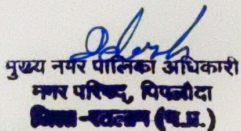 मुख्य नगर पालिका अधिकारी
नगर परिषद्, पिपलौदा
जिला-रतलाम (म.प्र.)